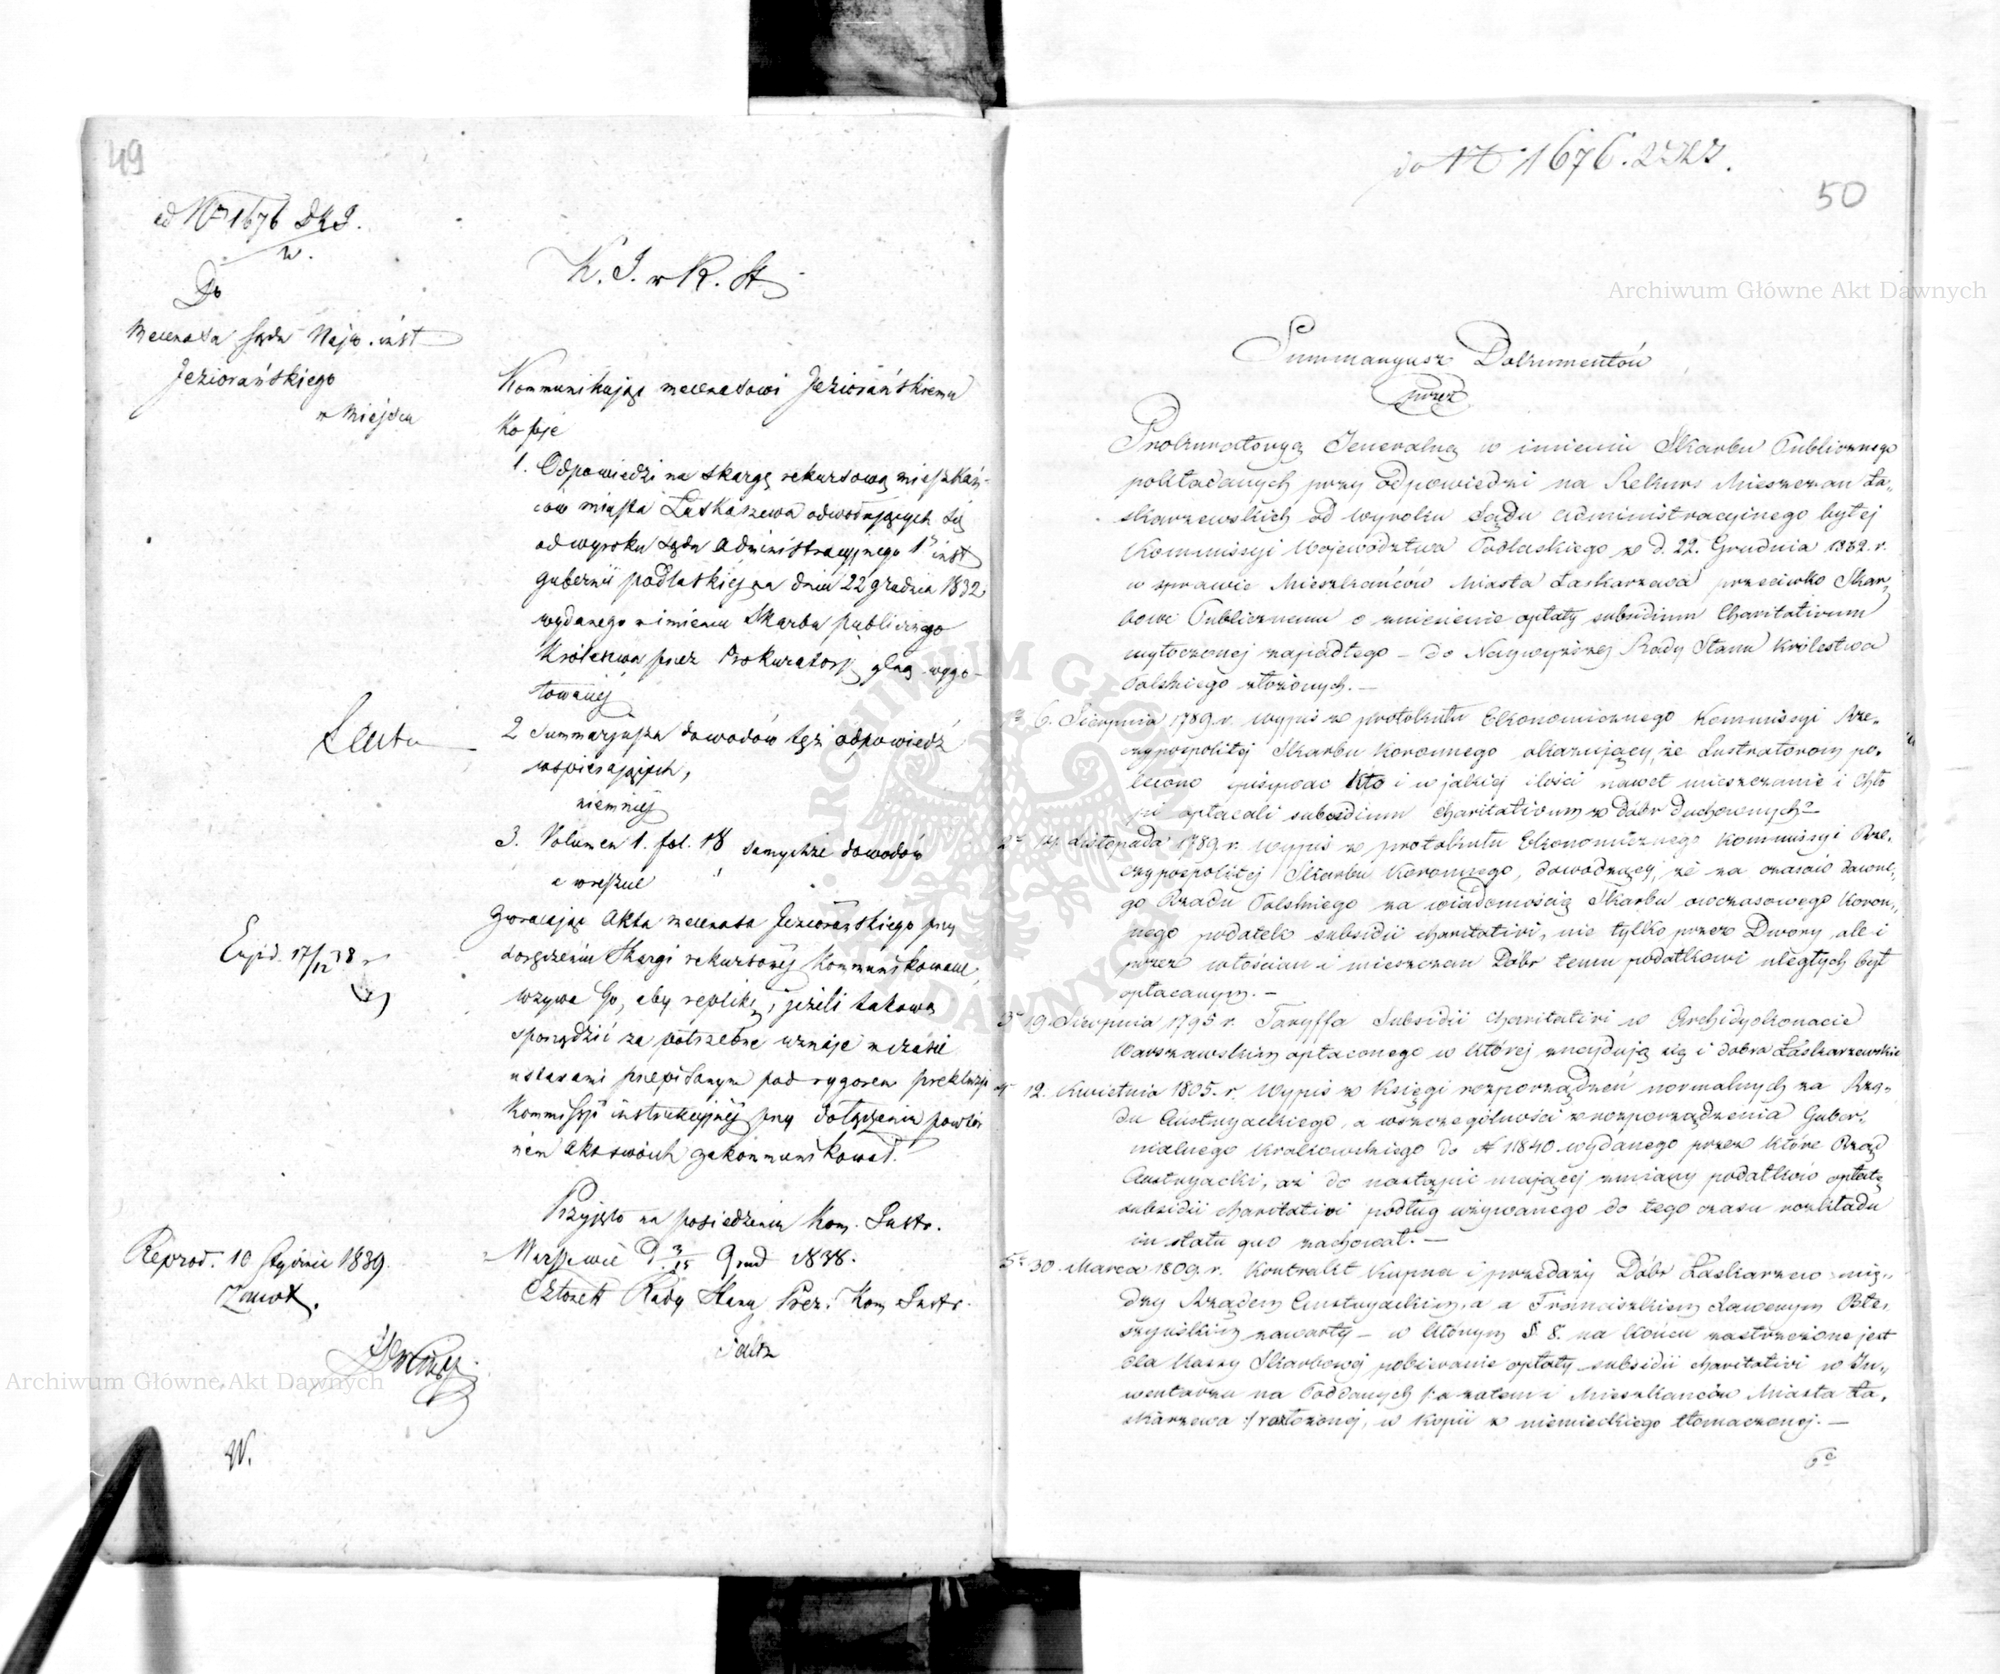 49
ad Nro 1676 DKJ.
w.
Do
Mecenasa Sądu Najw. inst
Jeziorańskiego
w Miejscu
K. J. w R. St
Kommunikując mecenasowi Jeziorańskiemu
Kopje
1. Odpowiedzi na skargę rekursową mieszkań-
ców miasta Łaskarzewa odwołujących się
od wyroku Sądu Administracyjnego 1 inst
gubernii podlaskiej na dniu 22 grudnia 1832
wydanego w imieniu Skarbu publicznego
Królestwa przez Prokuratorję glną wygo-
towanej
2 Summarjusza dowodów tęż odpowiedź
wspierających,
niemniej
3. Volumen 1. fol. 18 samychże dowodów
a wreszcie
zwracając Akta mecenasa Jeziorańskiego przy
doręczeniu Skargi rekursowej kommunikowane,
wzywa Go, aby replikę, jeżeli takową
sporządzić za potrzebne uzna, w czasie
ustawami przepisanym pod rygorem prekluzji
Kommissji instrukcyjnej przy dołączeniu powtór
nem Akt swoich zakommunikował.
Przyjęto na posiedzeniu Kom. Instr.
w Warszawie d. 3/15 Grud 1838.
Członek Rady Stanu Prez. Kom Instr.
Exped. 17/12 38 r
Reprod. 10 Stycznia 1839.
W.
Archiwum Główne Akt Dawnych
do N 1676.
50
Archiwum Główne Akt Dawnych
Summaryusz Dokumentów
przez
Prokuratoryą Jeneralną w imieniu Skarbu Publicznego
pokładanych przy odpowiedzi na Rekurs Mieszczan Ła-
skarzewskich od wyroku Sądu Administracyjnego byłej
Kommissyi Województwa Podlaskiego w d. 22. Grudnia 1832. r.
w sprawie Mieszkańców Miasta Łaskarzewa przeciwko Skar-
bowi Publicznemu o zniesienie opłaty subsidium Charitativum
wytoczonej zapadłego - do Najwyższej Rady Stanu Królestwa
Polskiego złożonych. -
1e 6. Sierpnia 1789. r. wypis z protokułu Ekonomicznego Kommissyi Rze-
czypospolitej Skarbu Koronnego okazujący, że Lustratorom po-
lecono spisywać kto i w jakiej ilości nawet mieszczanie i Chło
pi opłacali subsidium charitativum z dóbr duchownych?
2e Listopada 1789. r. wypis z protokułu Ekonomicznego Kommissyi Rze-
czypospolitej Skarbu Koronnego, dowodzący, że za czasów dawne-
go Rządu Polskiego za wiadomością Skarbu owczasowego Koron-
nego podatek subsidii charitativi, nie tylko przez Dwory ale i
przez włościan i mieszczan Dóbr temu podatkowi uległych był
opłacanym. -
3e 19. Sierpnia 1795 r. Taryffa Subsidii Charitativi w Archidyakonacie
Warszawskim opłaconego w której znajdują się i dobra Łaskarzewskie
4e 12. Kwietnia 1805. r. Wypis z Księgi rozporządzeń normalnych za Rzą-
du Austryackiego, a wszczególności z rozporządzenia Guber-
nialnego Krakowskiego do N 11840. wydanego przez które Rząd
Austryacki, aż do nastąpić mającej zmiany podatków opłatę
subsidii charitativi podług używanego do tego czasu rozkładu
in statu quo zachował. -
5e 30. Marca 1809. r. Kontrakt Kupna i przedaży Dóbr Łaskarzew mię-
dzy Rządem Austryackim, a Franciszkiem Xawerym
zawarty - w którym §. 8. na końcu zastrzeżone jest
dla Kassy Skarbowej pobieranie opłaty subsidii charitativi w In-
wentarzu na Poddanych /: a zatem i Mieszkańców Miasta Ła-
skarzewa :/ rozłożonej, w Kopii z niemieckiego tłomaczonej. -
6e
ARCHIWUM GŁÓWNE AKT DAWNYCH